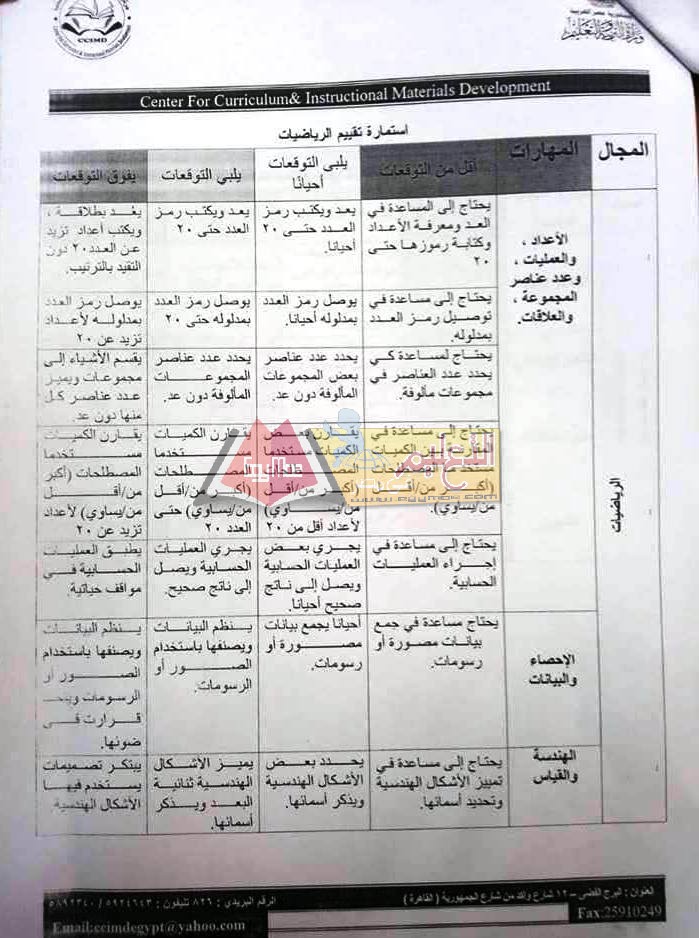 CCIMD
وزارة التربية والتعليم
Center For Curriculum& Instructional Materials Development
استمارة تقييم الرياضيات
المجال
المهارات
أقل من التوقعات
يلبي التوقعات
أحيانًا
يلبي التوقعات
يفوق التوقعات
الرياضيات
الأعداد ،
والعمليات ،
وعدد عناصر
المجموعة ،
والعلاقات.
يحتاج إلى المساعدة في
العد ومعرفة الأعداد
وكتابة رموزها حتى
٢٠
يعد ويكتب رمز
العدد حتى ٢٠
أحيانا.
يعد ويكتب رمز
العدد حتى ٢٠
يعُد بطلاقة ،
ويكتب أعداد تزيد
عن العدد٢٠ دون
التقيد بالترتيب.
يحتاج إلى مساعدة في
توصيل رمز العدد
بمدلوله.
يوصل رمز العدد
بمدلوله أحيانا.
يوصل رمز العدد
بمدلوله حتى ٢٠
يوصل رمز العدد
بمدلوله لأعداد
تزيد عن ٢٠
يحتاج لمساعدة كي
يحدد عدد العناصر في
مجموعات مألوفة.
يحدد عدد عناصر
بعض المجموعات
المألوفة دون عد.
يحدد عدد عناصر
المجموعات
المألوفة دون عد.
يقسم الأشياء إلى
مجموعات ويميز
عدد عناصر كل
منها دون عد.
يحتاج إلى مساعدة في
المقارنة بين الكميات
مستخدم المصطلحات
(أكبر من/أقل
من/يساوي).
يقارن بعض
الكميات مستخدما
المصطلحات
(أكبر من/أقل
من/يساوي)
لأعداد أقل من ٢٠
يقارن الكميات
مستخدما
المصطلحات
(أكبر من/أقل
من/يساوي) حتى
العدد ٢٠
يقارن الكميات
مستخدما
المصطلحات (أكبر
من/أقل
من/يساوي) لأعداد
تزيد عن ٢٠
يحتاج إلى مساعدة في
إجراء العمليات
الحسابية.
يجري بعض
العمليات الحسابية
ويصل إلى ناتج
صحيح أحيانا.
يجري العمليات
الحسابية ويصل
إلى ناتج صحيح.
يطبق العمليات
الحسابية في
مواقف حياتية.
الإحصاء
والبيانات
يحتاج مساعدة في جمع
بيانات مصورة أو
رسومات.
أحيانا يجمع بيانات
مصورة أو
رسومات.
ينظم البيانات
ويصنفها باستخدام
الصور أو
الرسومات.
ينظم البيانات
ويصنفها باستخدام
الصور أو
الرسومات
قرارت في
ضوئها.
الهندسة
والقياس
يحتاج إلى مساعدة في
تمييز الأشكال الهندسية
وتحديد أسمائها.
يحدد بعض
الأشكال الهندسية
ويذكر أسمائها.
يميز الأشكال
الهندسية ثنائية
البعد ويذكر
أسمائها.
يبتكر تصميمات
يستخدم فيها
الأشكال الهندسية
العنوان : البرج الفضي – ١٢ شارع واكد من شارع الجمهورية ( القاهرة )
الرقم البريدي : ٨٢٦ تليفون : ٥٩٢٤٦٤٣ / ٥٨٩٢٣٤٠
Fax:25910249
Email:ccimdegypt@yahoo.com